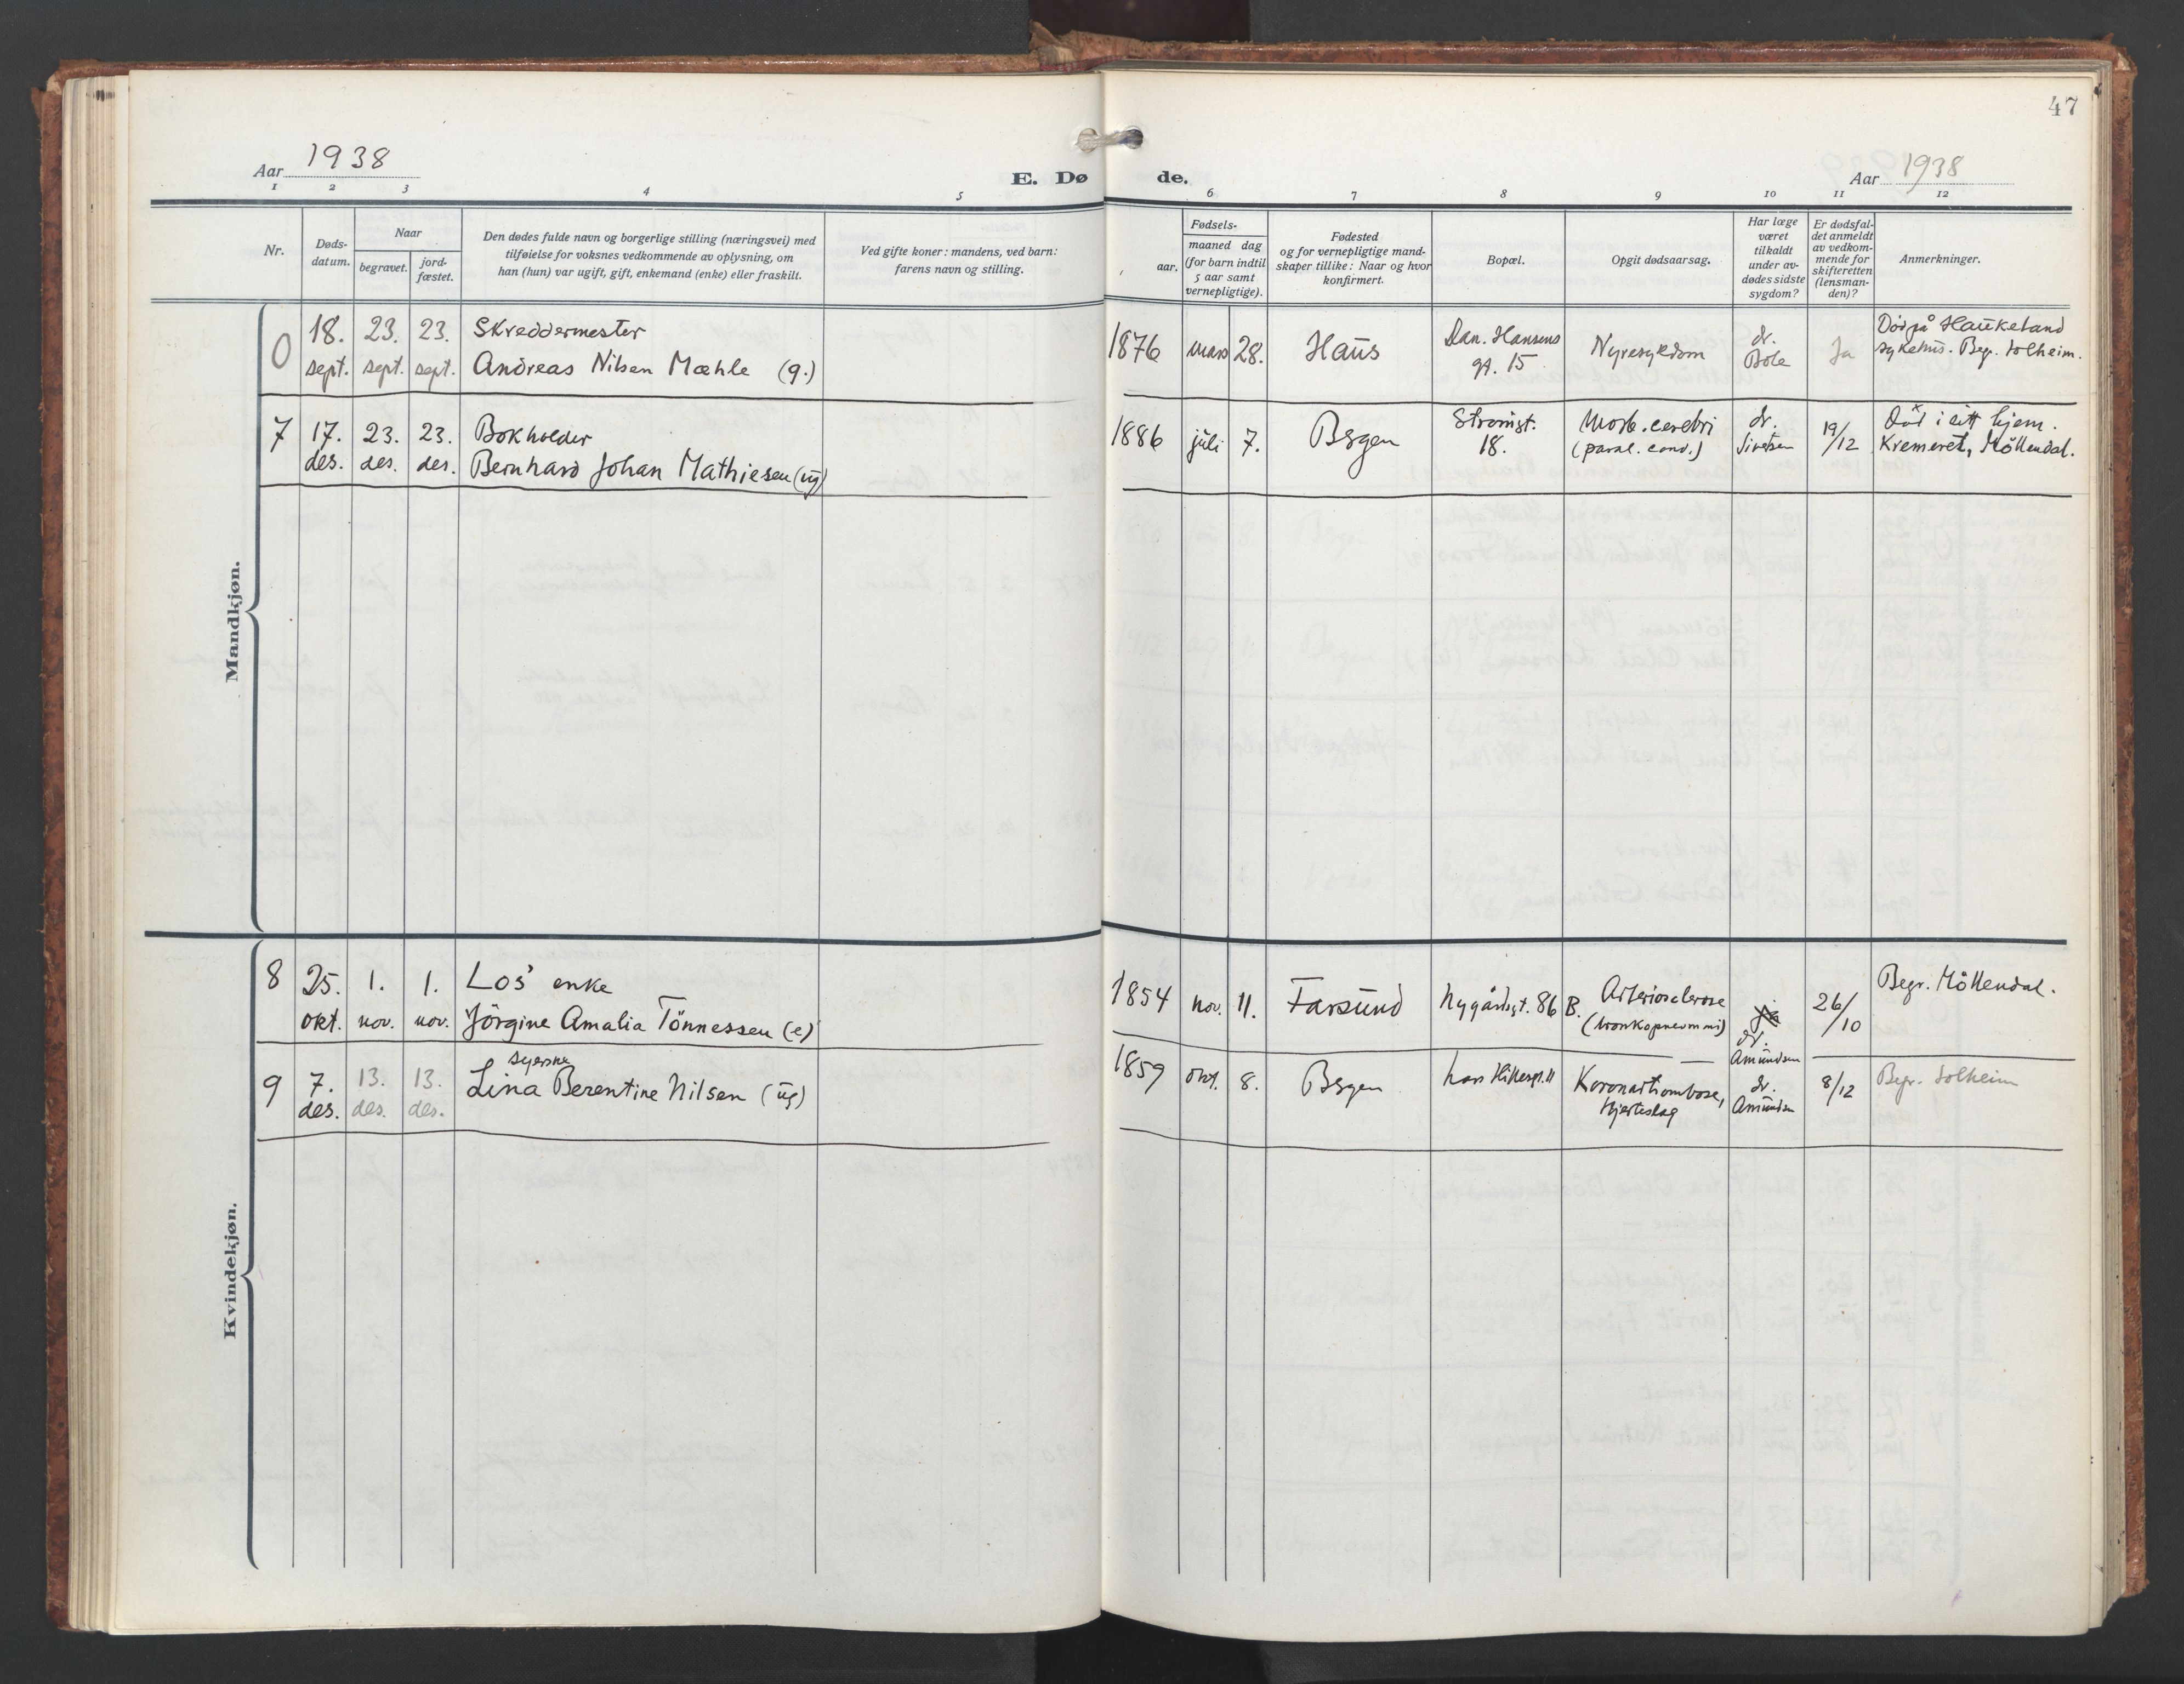 47
Aar 1938
E. Dø de.
Aar 1938
1 2 3 4 5 6 7 8 9 10 11 12
Nr.
Døds-
datum.
Naar
begravet.
jord-
fæstet.
Den dødes fulde navn og borgerlige stilling (næringsvei) med
tilføielse for voksnes vedkommende av oplysning, om
han (hun) var ugift, gift, enkemand (enke) eller fraskilt.
Ved gifte koner: mandens, ved barn:
farens navn og stilling.
Fødsels-
aar.
maaned dag
(for barn indtil
5 aar samt
vernepligtige).
Fødested
og for vernepligtige mand-
skaper tillike: Naar og hvor
konfirmert.
Bopæl.
Opgit dødsaarsag.
Har læge
været
tilkaldt
under av-
dødes sidste
sygdom?
Er dødsfal-
det anmeldt
av vedkom-
mende for
skifteretten
(lensman-
den)?
Anmerkninger.
Mandkjøn.
0 18. 23. 23. Skreddermester
sept. sept. sept. Andreas Nilsen Mæhle (g.)
1876 mars 28. Haus
Dan. Hansens
gt. 15
Nyresykdom
dr.
Bøe
Ja
Död på Haukeland
sykehus. Begr. Solheim.
7 17. 23. 23. Bokholder
des. des. des. Bernhard Johan Mathiesen (ug)
1886 juli 7. Bergen
Strömgt.
18.
Morb. cerebri
(paral. cord.)
dr.
Sivertsen
19/12
Död i sitt hjem.
Kremeret, Möllendal.
Kvindekjøn.
8 25. 1. 1. Los' enke
okt. nov. nov. Jörgine Amalia Tönnessen (e)
1854 nov. 11. Farsund
Nygårdsgt. 86 B.
Arteriosclerose
(bronkopneumoni)
ja
dr.
Amundsen
26/10
Begr. Möllendal.
9 7. 13. 13. syerske
des. des. des. Lina Berentine Nilsen (ug)
1859 okt. 8. Bergen
Lars Hillesgt. 11
Koronartrombose,
Hjerteslag
dr.
Amundsen
8/12
Begr. Solheim